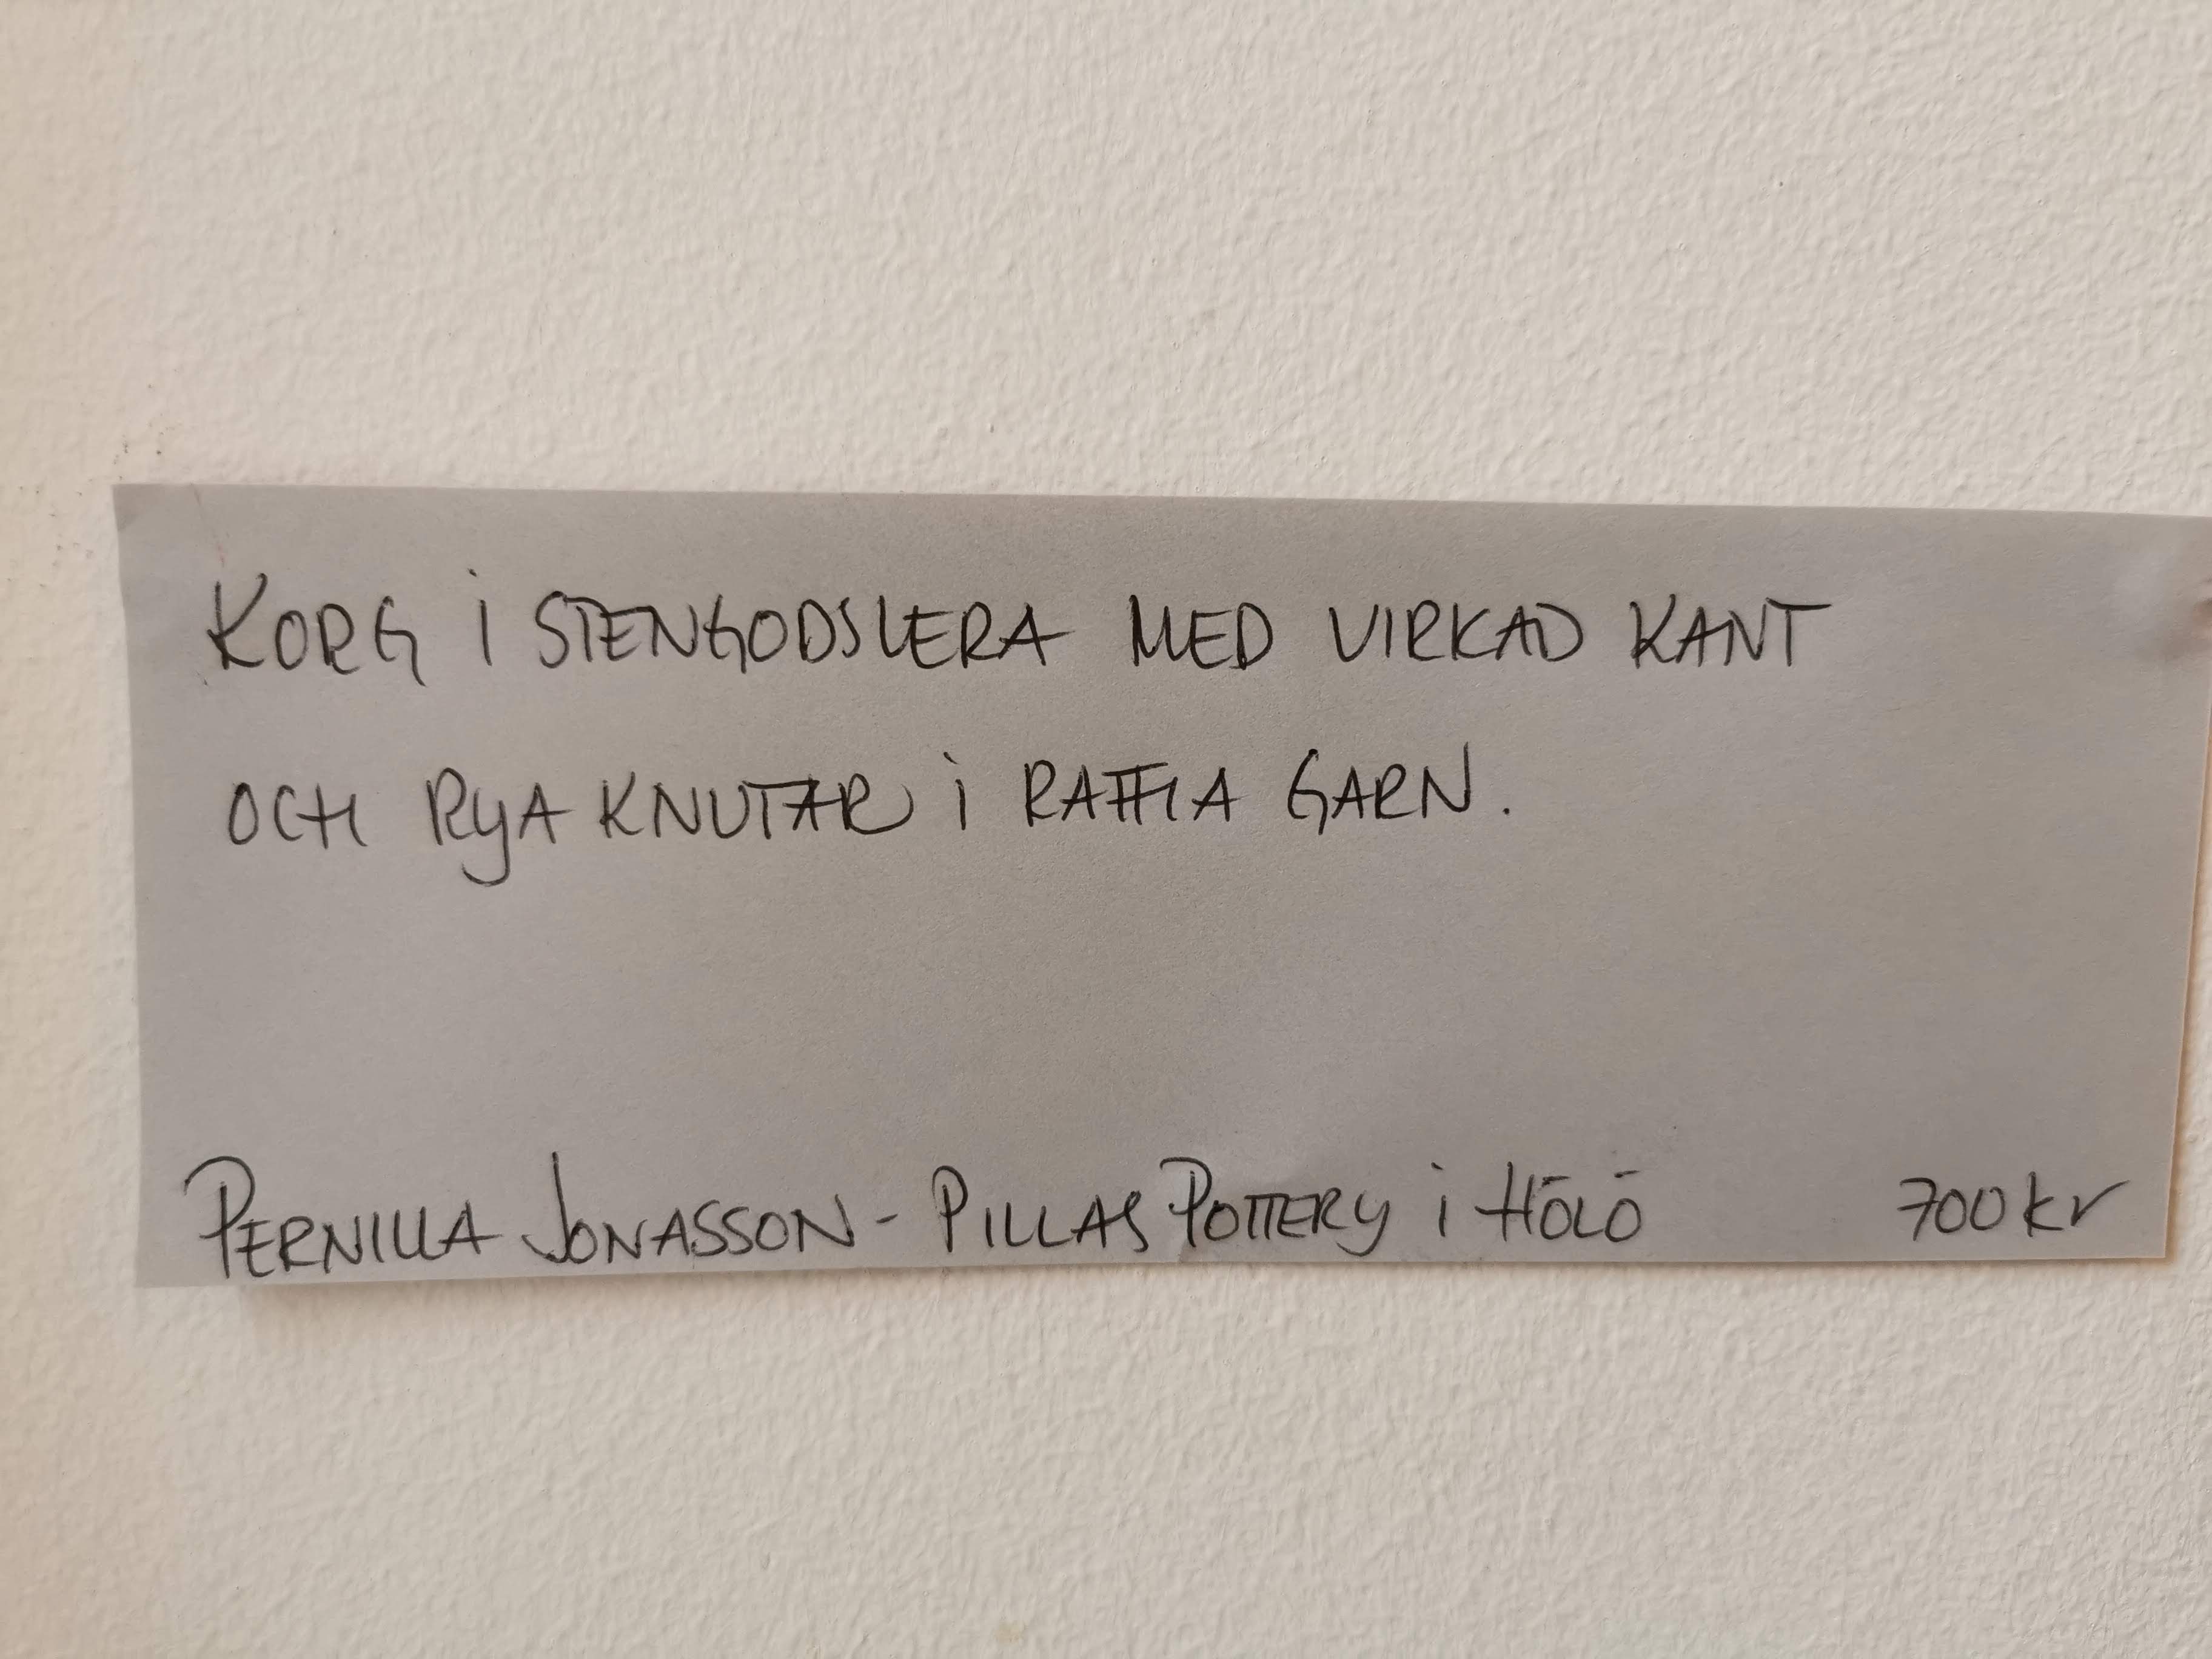 KORG i STENGODSLERA MED VIRKAD KANT
OCH RYA KNUTAR i RAFFIA GARN.
PERNILLA JONASSON - PILLAS POTTERY i HÖLÖ 700 kr